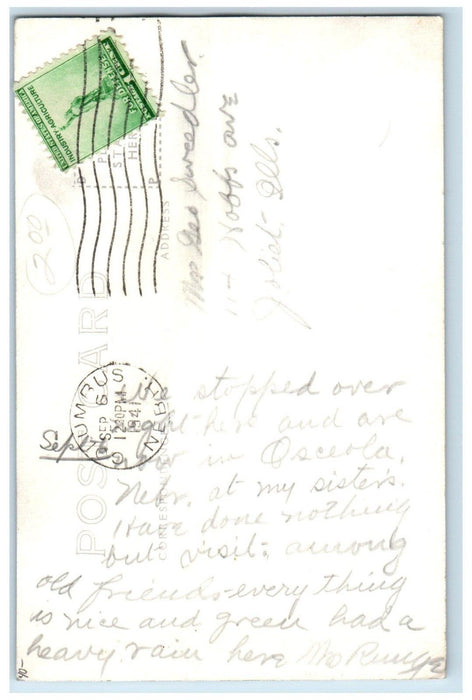 UNITED STATES OF AMERICA
INDUSTRY AGRICULTURE
FOR DEFENSE
1 CENT
STAMP
HERE
2.00
POST CARD
ADDRESS
Mrs Geo Sweedler
114 Hobbs ave
Joliet, Ills.
CORRESPONDENCE
COLUMBUS NEBR.
SEP 6
12 30 PM
1941
Sept 6
We stopped over
night here and are
now in Osceola,
Nebr. at my sisters.
Have done nothing
but visit among
old friends everything
is nice and green had a
heavy rain here Mrs Runge
90-